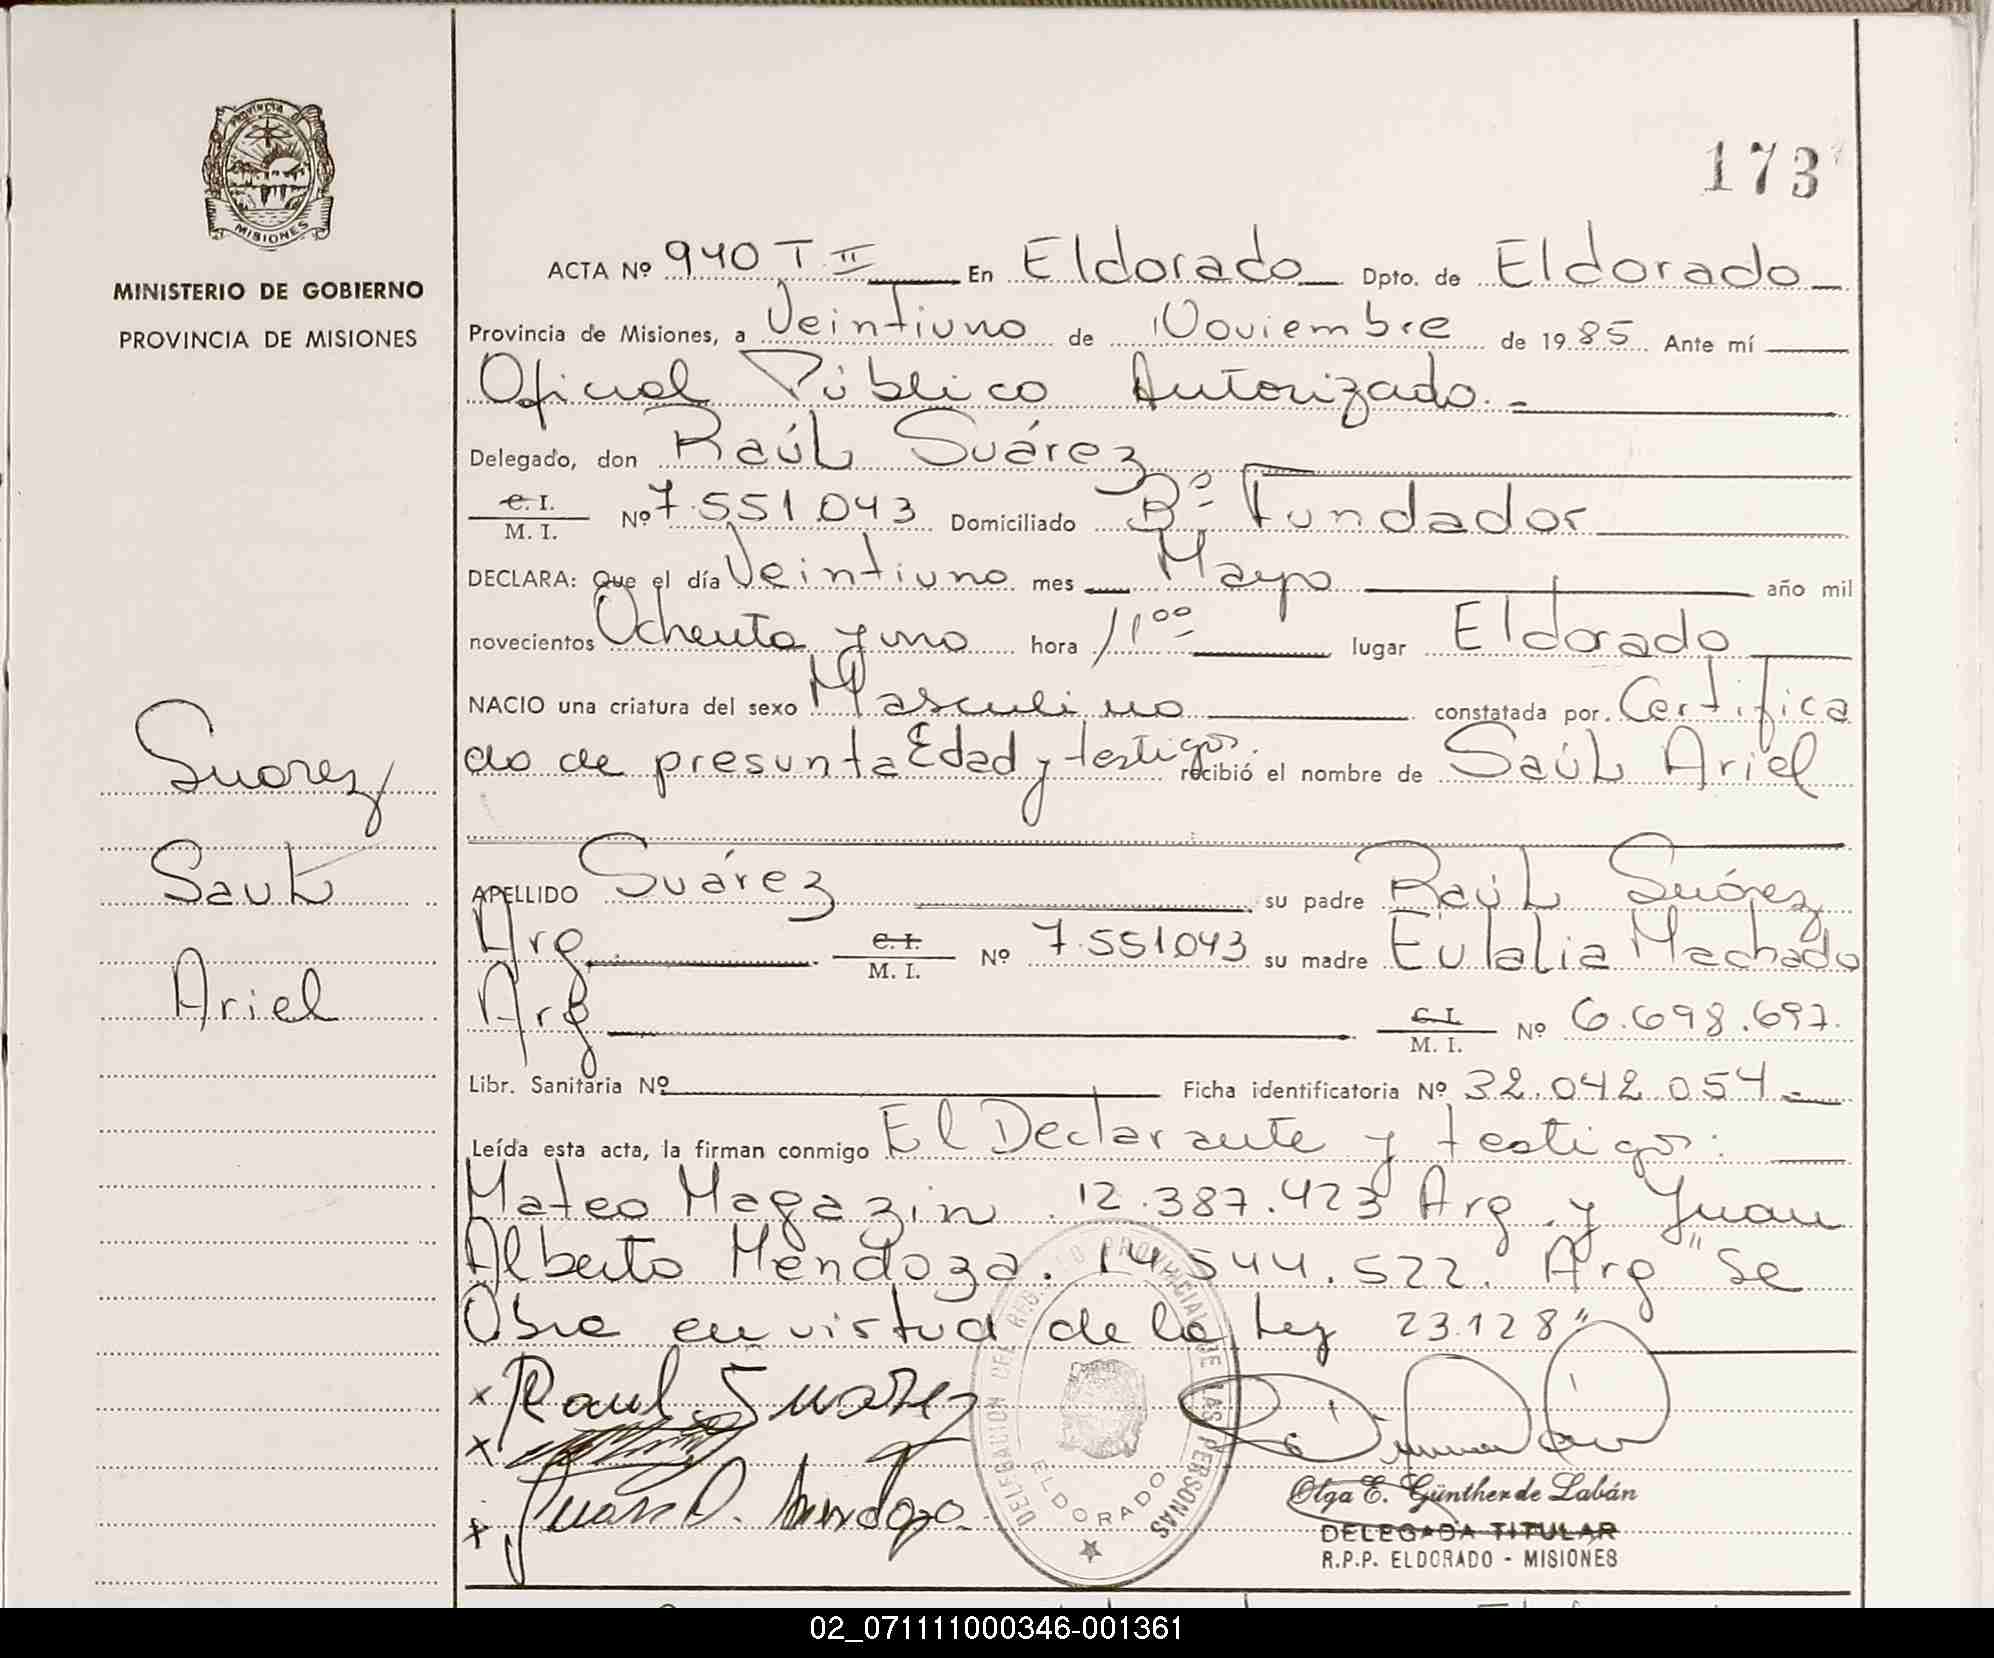 173
PROVINCIA DE
MISIONES
MINISTERIO DE GOBIERNO
PROVINCIA DE MISIONES
Suarez
Saúl
Ariel
ACTA Nº 940 T II En Eldorado Dpto. de Eldorado
Provincia de Misiones, a Veintiuno de Noviembre de 1985 Ante mí
Oficial Público Autorizado.-
Delegado, don Raúl Suárez
C. I.
M. I. Nº 7.551.043 Domiciliado Bº Fundador
DECLARA: Que el día Veintiuno mes Mayo año mil
novecientos Ochenta y uno hora 11ºº lugar Eldorado
NACIO una criatura del sexo Masculino constatada por Certifica
do de presunta Edad y testigos. recibió el nombre de Saúl Ariel
APELLIDO Suárez su padre Raúl Suárez
Arg C. I.
M. I. Nº 7.551.043 su madre Eulalia Machado
Arg C. I.
M. I. Nº 6.698.697.
Libr. Sanitaria Nº Ficha identificatoria Nº 32.042.054
Leída esta acta, la firman conmigo El Declarante y testigos:
Mateo Magazin. 12.387.423 Arg. y Juan
Alberto Mendoza. 14.544.522. Arg "Se
Obra en virtud de la Ley 23.128"
x Raul Suarez
x
x Juan A. Mendoza.
DELEGACION DEL REGISTRO PROVINCIAL DE LAS PERSONAS
ELDORADO
Olga E. Günther de Labán
DELEGADA TITULAR
R.P.P. ELDORADO - MISIONES
02_071111000346-001361